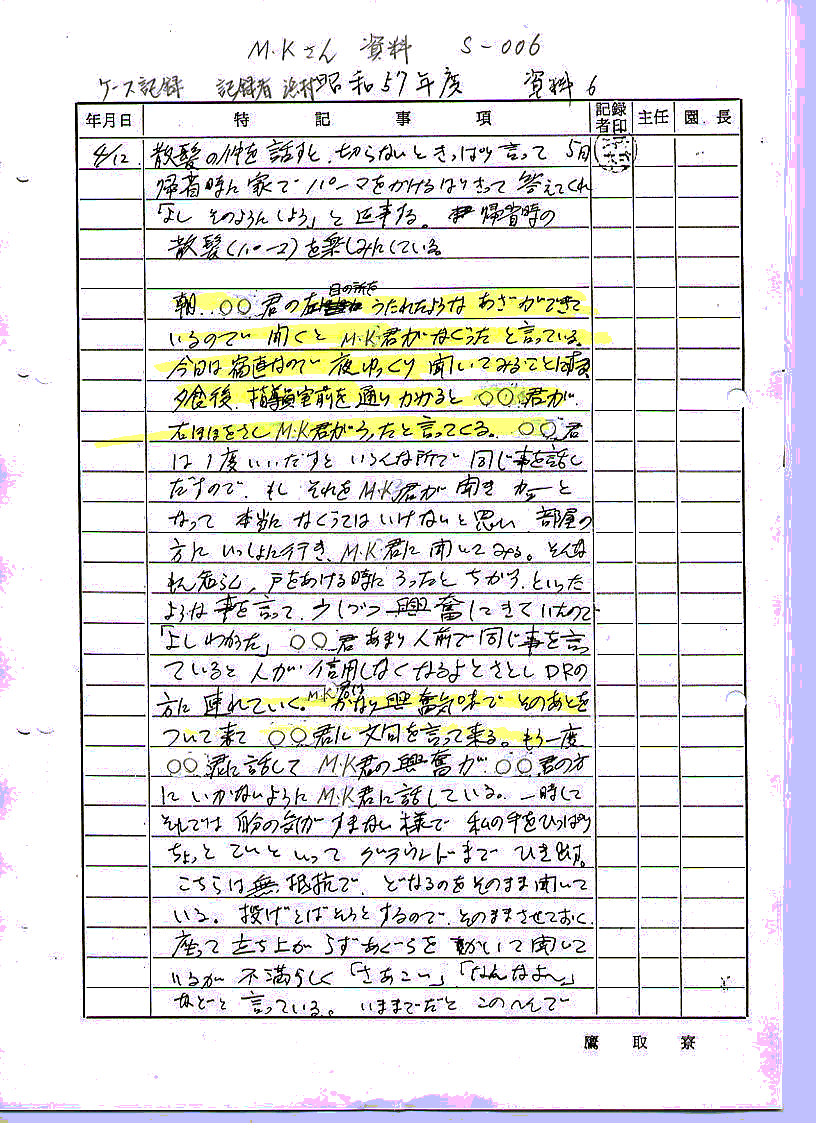 M.Kさん 資料 S-006
ケース記録 記録者 浜村 昭和57年度 資料6
年月日 特記事項 記録者印 主任 園長
4/12. 散髪の件を話すと、切らないときっぱり言って 5月
帰省時に家でパーマをかけるはりきって答えてくれ
「よし そのようにしよう」と返事する。帰省時の
散髪(パーマ)を楽しみにしている。
朝、○○君の左目の所をうたれたような あざができて
いるので 聞くと M.K君がなぐった と言っている。
今日は宿直なので 夜ゆっくり 聞いてみることに
夕食後、指導員室前を通りかかると ○○君が
右ほほをさし M.K君がうったと言ってくる。○○君
は1度いいだすと いろんな所で 同じ事を話し
だすので、もし それをM.K君が聞き カーと
なって 本当に なぐってはいけないと思い 部屋の
方に いっしょに行き、M.K君に聞いてみる。そんな
戸をあける時に うったと ちがう、といった
ような事を言って、少しづつ 興奮してきていたので
「よしわかった」 ○○君あまり人前で 同じ事を言っ
ていると 人が 信用しなくなるよとさとし DRの
方に 連れていく。M.K君は かなり興奮気味で そのあとを
ついて来て ○○君に 文句を言って来る。もう一度
○○君に話して M.K君の興奮が ○○君の方
にいかないように M.K君に話している。一時して
それでは 自分の気がすまない様で 私の手をひっぱり
ちょっと こいといって グラウンドまで ひき出す。
こちらは無抵抗で、どなるのをそのまま聞いて
いる。投げとばそうとするので、そのままさせておく、
座って 立ち上がらず あぐらを かいて聞いて
いるが 不満らしく「さあこい」「なんなよ〜」
などと 言っている。いままでだと このへんで
鷹取寮